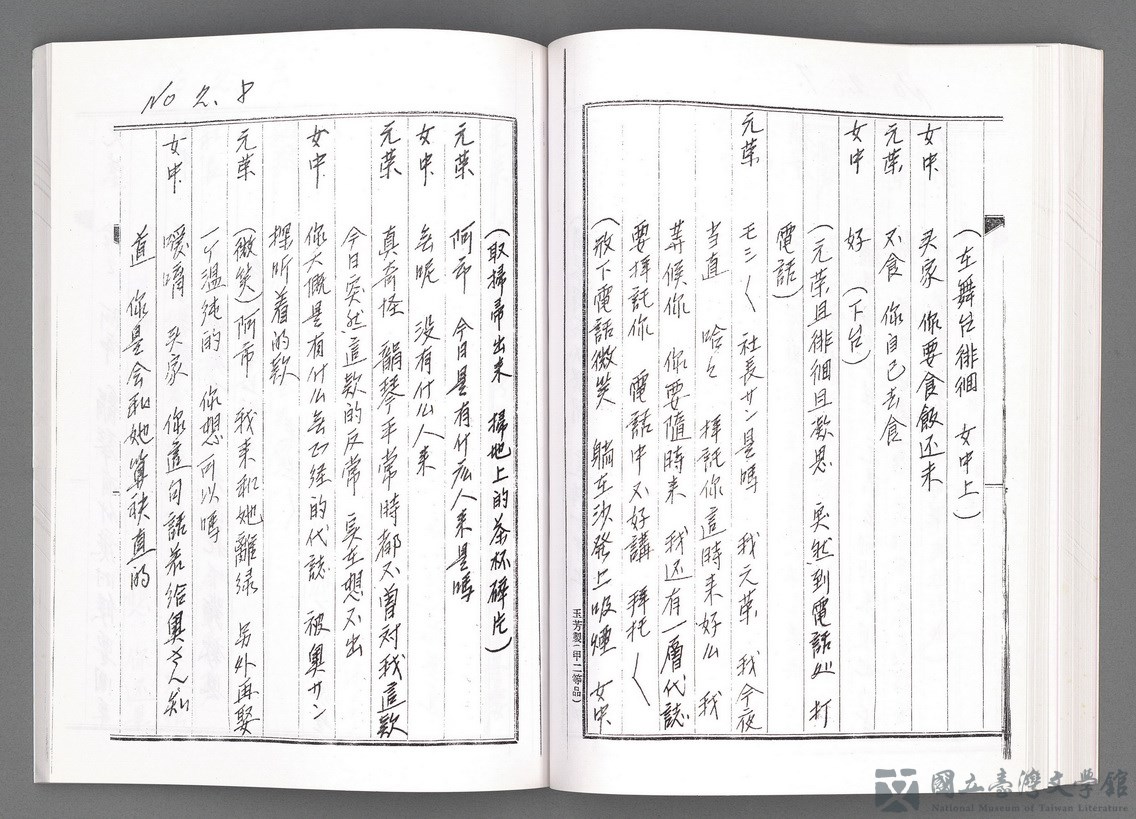 (在舞台徘徊　女中上)
女中　头家　你要食飯还未
元葉　不食　你自己去食
女中　好　(下台)
(元葉且徘徊且歎思　突然到電話处　打
電話)
元葉　モシ〱　社長サン是嗎　我元葉　我今夜
当直　哈々　拜託你這時来好么　我
等候你　你要隨時来　我还有一層代誌
要拜託你　電話中不好講　拜托〱
(放下電話微笑　躺在沙發上吸煙　女中
玉芳製(甲二等品)
No 2. 8
(取掃帚出来　掃地上的茶杯碎片)
元葉　阿市　今日是有什麽人来是嗎
女中　無呢　没有什么人来
元葉　真奇怪　韻琴平常時都不曾対我這款
今日突然這款的反常　実在想不出
女中　你大概是有什么無正経的代誌　被奥サン
探听着的款
元葉　(微笑)阿市　我来和她離緣　另外再娶
一个溫純的　你想可以嗎
女中　噯唷　头家　你這句話若給奥さん知
道　你是会和她算袂直的
國立臺灣文學館
National Museum of Taiwan Literature